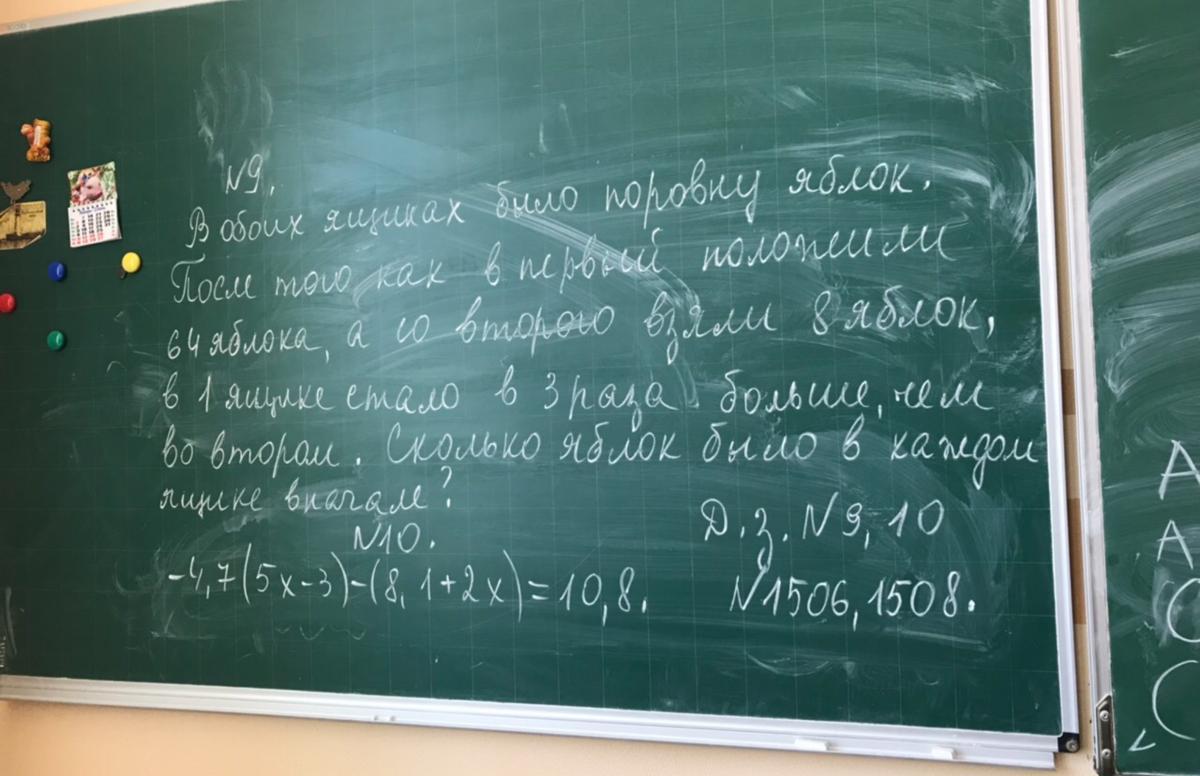 N9.
В обоих ящиках было поровну яблок.
После того как в первый положили
64 яблока, а со второго взяли 8 яблок,
в 1 ящике стало в 3 раза больше, чем
во втором. Сколько яблок было в каждом
ящике вначале?
N10.
-4,7(5x-3)-(8,1+2x)=10,8.
Д.з. N9,10
N1506,1508.
А
А
С